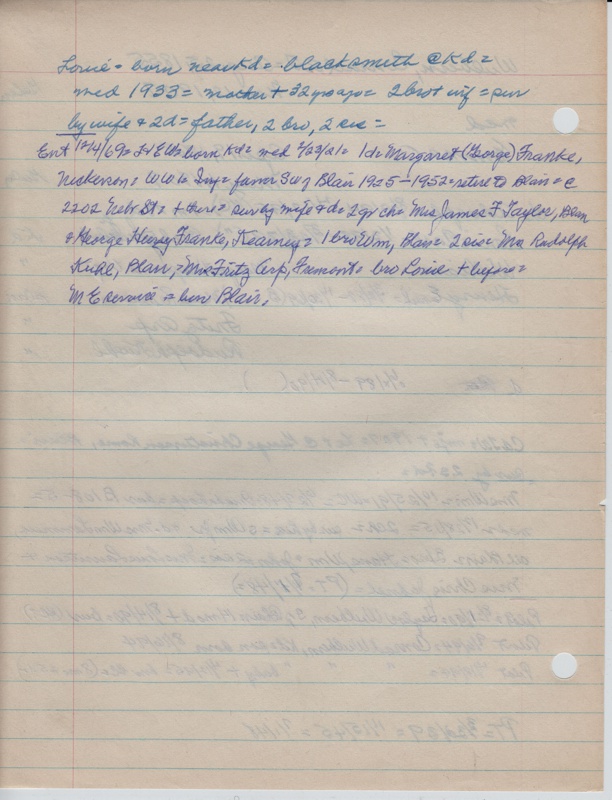 Louie = born near Kd = blacksmith @ Kd =
med 1933 = mother + 32 yrs ago = 2 bro + wif = sur
by wife & 2d = father, 2 bro, 2 sis =
Ent 12/4/69 = born Kd = med 2/23/21 = 1d = Margaret (George) Franke,
Nickerson = WW I = Inf = farm SW of Blair 1925-1952 = retire to Blair = @
2202 Nebr St = + there = sur by wife & d = 2 gr ch = Mrs James F Taylor,
& George Henry Franke, Kearney = 1 bro Wm, Blair = 2 sis = Mrs Rudolph
Kuhl, Blair, = Mrs Fritz Arp, Fremont = bro Louie + before =
M E service = bur Blair.